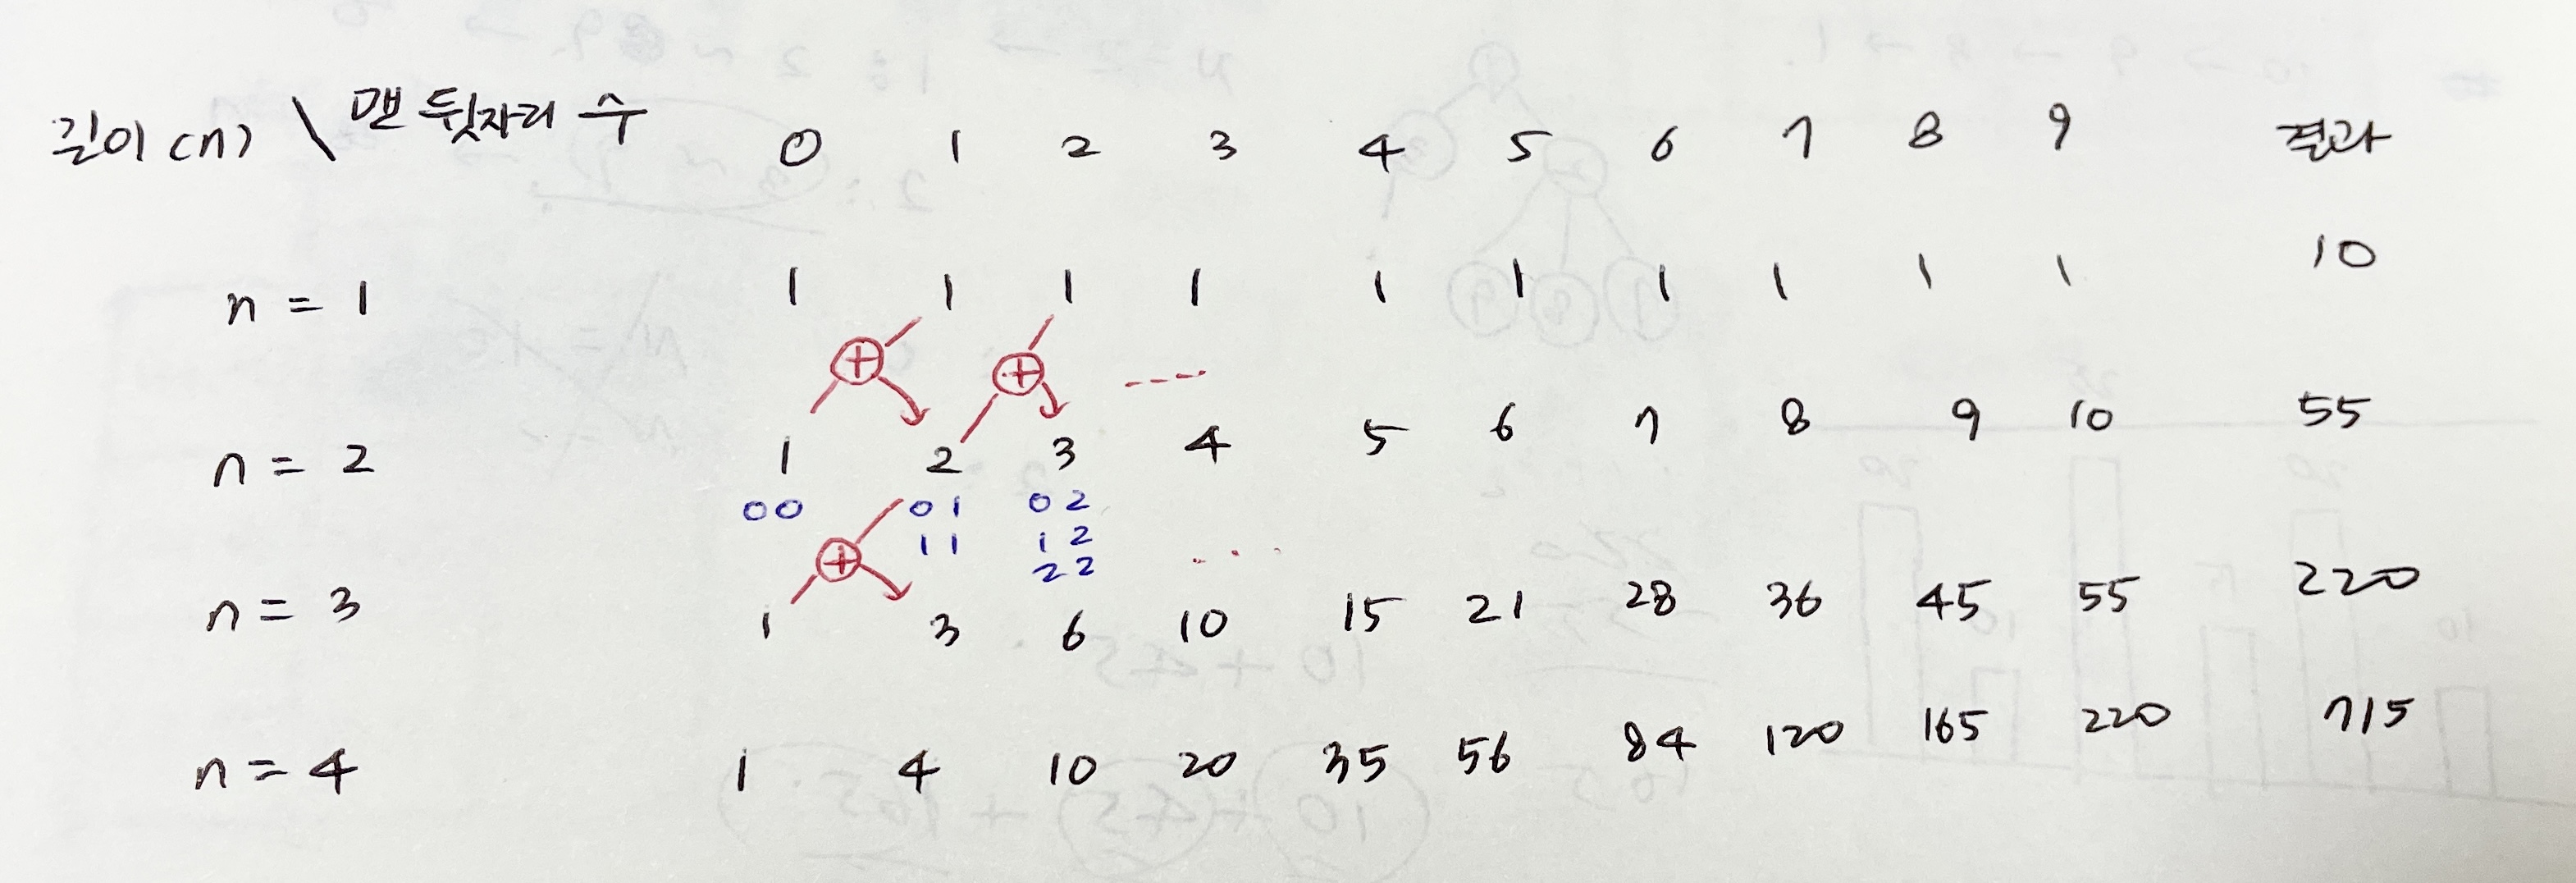 길이(n) \ 맨 뒷자리 수 0 1 2 3 4 5 6 7 8 9 결과
n = 1 1 1 1 1 1 1 1 1 1 1 10
⊕ ⊕ ----
n = 2 1 2 3 4 5 6 7 8 9 10 55
00 01 02
11 12
22
⊕ ...
n = 3 1 3 6 10 15 21 28 36 45 55 220
n = 4 1 4 10 20 35 56 84 120 165 220 715